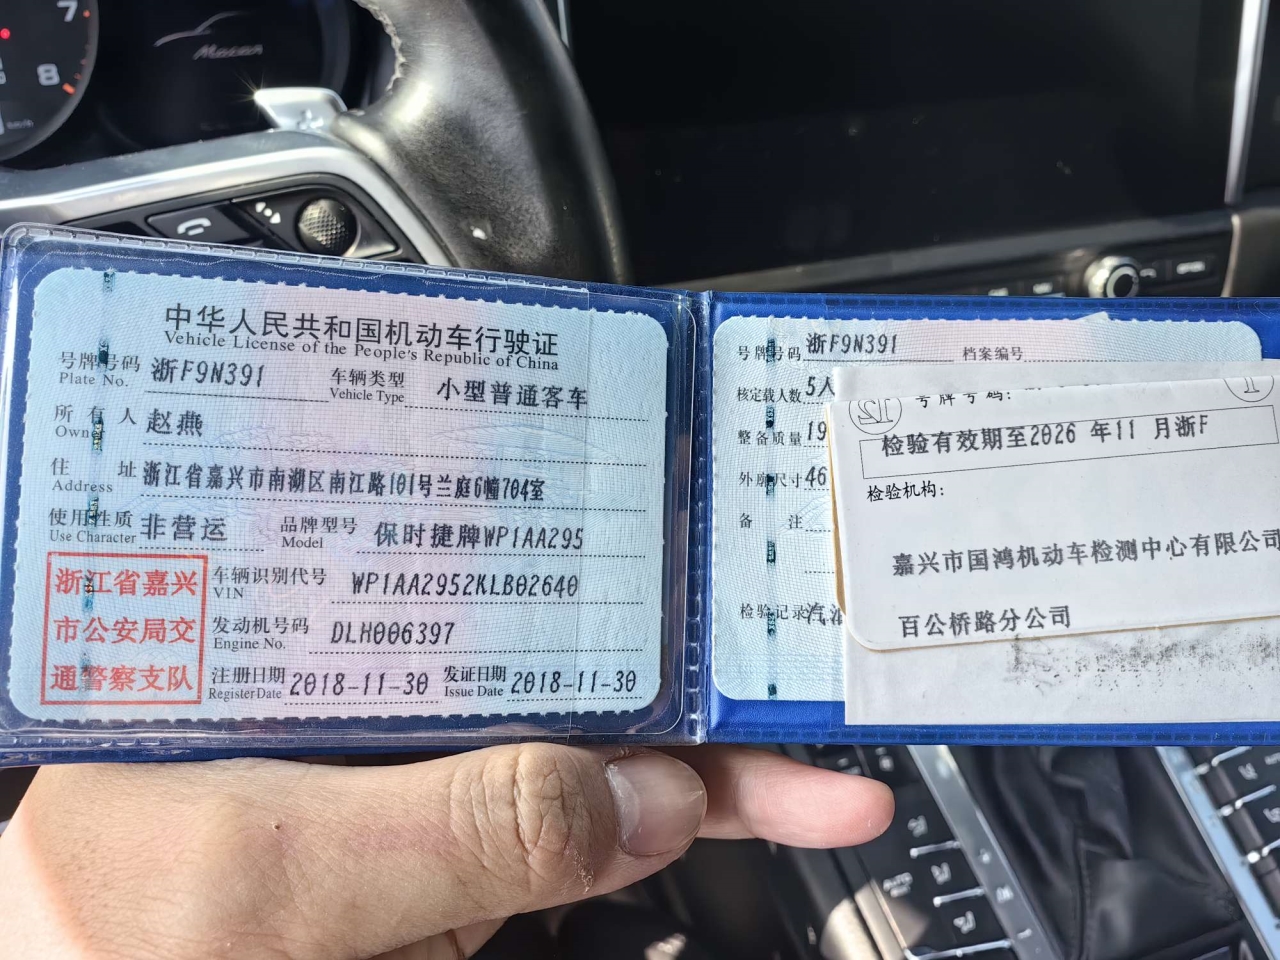 7
8
Macan
中华人民共和国机动车行驶证
Vehicle License of the People's Republic of China
号牌号码 浙F9N391 车辆类型 小型普通客车
Plate No. Vehicle Type
所有人 赵燕
Owner
住址 浙江省嘉兴市南湖区南江路101号兰庭6幢704室
Address
使用性质 非营运 品牌型号 保时捷牌WP1AA295
Use Character Model
浙江省嘉兴
市公安局交
通警察支队
车辆识别代号 WP1AA2952KLB02640
VIN
发动机号码 DLH006397
Engine No.
注册日期 2018-11-30 发证日期 2018-11-30
Register Date Issue Date
号牌号码 浙F9N391 档案编号
核定载人数 5人
整备质量 19
外廓尺寸 46
备注
检验记录 汽油
12
1
号牌号码:
检验有效期至2026 年11 月浙F
检验机构:
嘉兴市国鸿机动车检测中心有限公司
百公桥路分公司